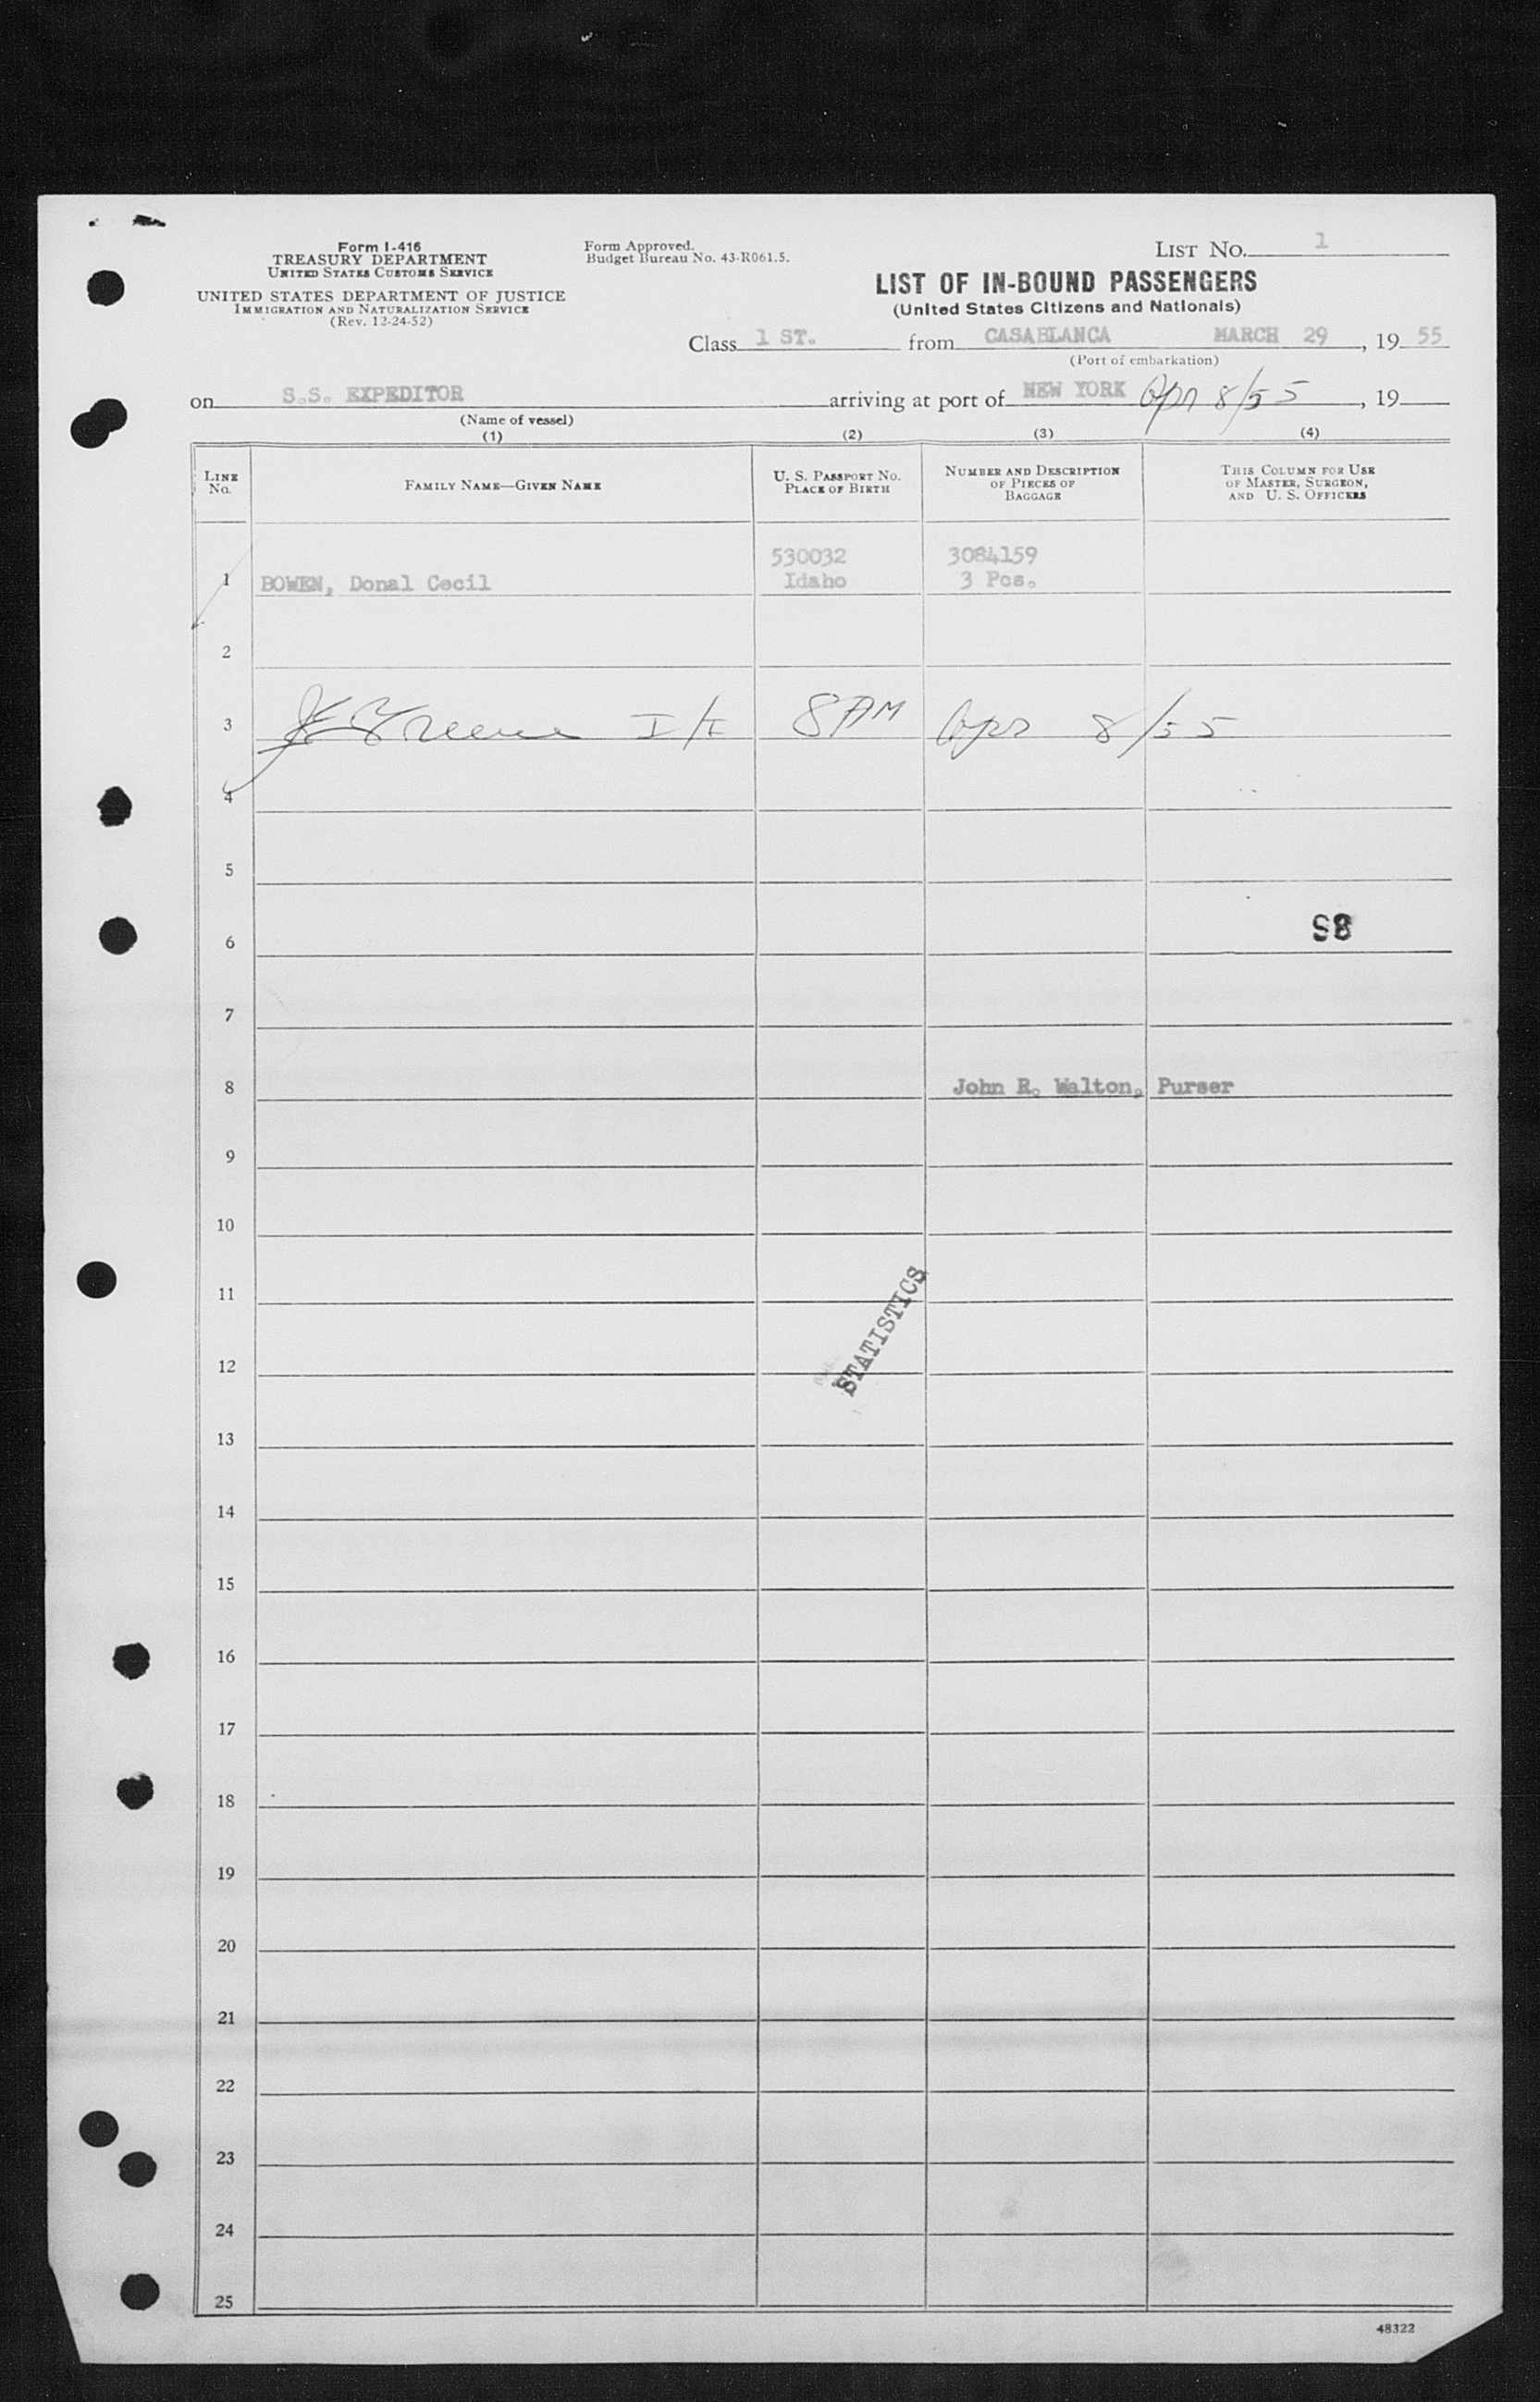 Form I-416
TREASURY DEPARTMENT
UNITED STATES CUSTOMS SERVICE
UNITED STATES DEPARTMENT OF JUSTICE
IMMIGRATION AND NATURALIZATION SERVICE
(Rev. 12-24-52)
Form Approved.
Budget Bureau No. 43-R061.5.
LIST NO. 1
LIST OF IN-BOUND PASSENGERS
(United States Citizens and Nationals)
Class 1 ST. from CASABLANCA MARCH 29, 19 55
(Port of embarkation)
on S.S. EXPEDITOR arriving at port of NEW YORK Apr 8/55, 19
(Name of vessel)
(1) (2) (3) (4)
LINE No. FAMILY NAME—GIVEN NAME U. S. PASSPORT NO. PLACE OF BIRTH NUMBER AND DESCRIPTION OF PIECES OF BAGGAGE THIS COLUMN FOR USE OF MASTER, SURGEON, AND U. S. OFFICERS
530032 3084159
1 BOWEN, Donal Cecil Idaho 3 Pcs.
2
3 Greene I/I 8 AM Apr 8/55
4
5
6 S8
7
8 John R. Walton, Purser
9
10
11
STATISTICS
12
13
14
15
16
17
18
19
20
21
22
23
24
25
48322